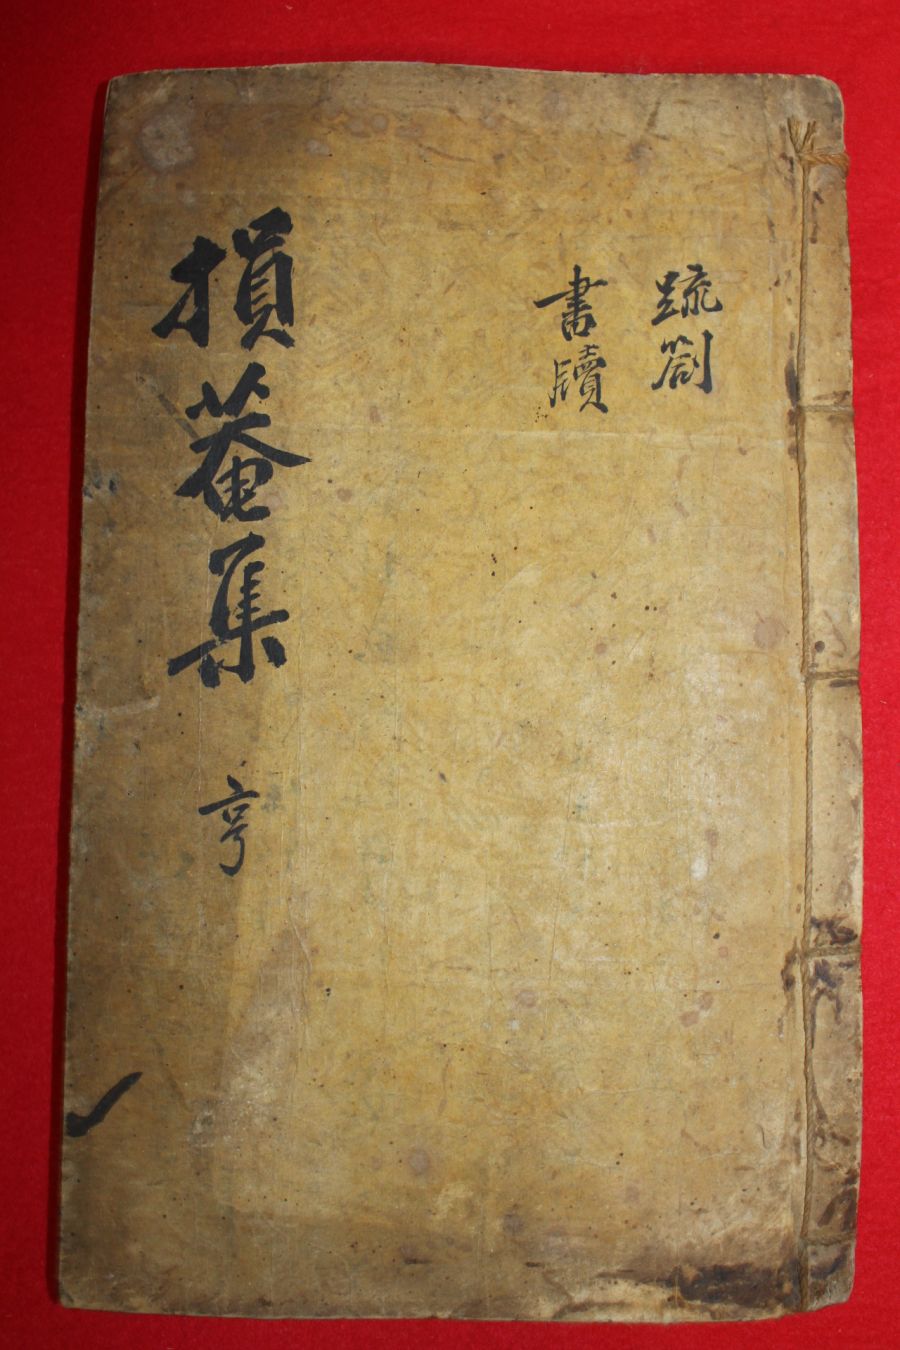 疏劄
書牘
損菴集 亨